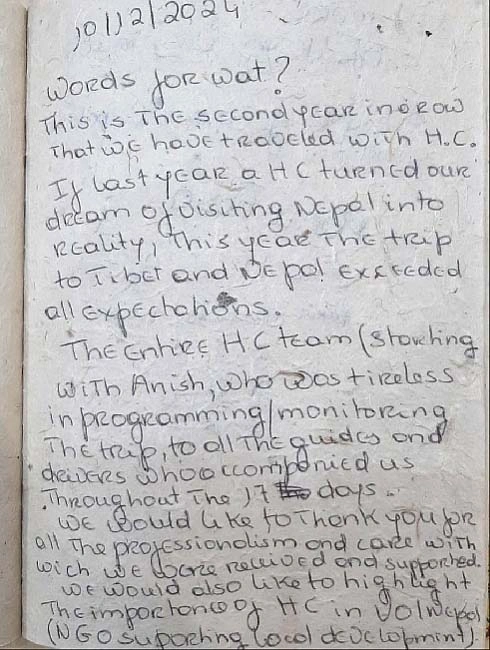 10/12/2024
Words for wat?
This is the second year in a row
that we have traveled with H.C.
If last year a HC turned our
dream of visiting Nepal into
reality, this year the trip
to Tibet and Nepal exceeded
all expectations.
The entire HC team (starting
with Anish, who was tireless
in programming/monitoring
the trip, to all the guides and
drivers who accompanied us
throughout the 17 days.
We would like to thank you for
all the professionalism and care with
wich we were received and supported.
We would also like to highlight
the importance of HC in VolNepal
(NGO suporting local development),